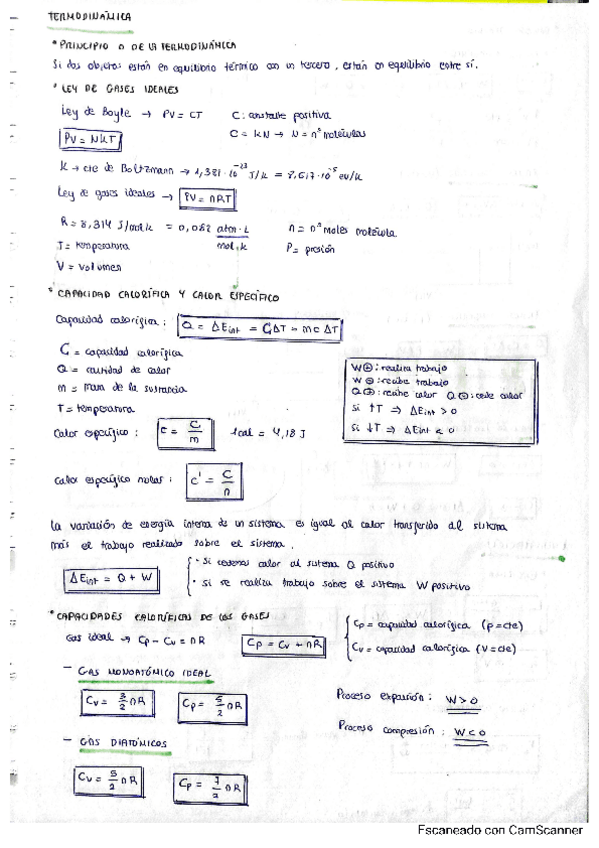 TERMODINÁMICA
* PRINCIPIO 0 DE LA TERMODINÁMICA
Si dos objetos están en equilibrio térmico con un tercero, están en equilibrio entre sí.
* LEY DE GASES IDEALES
Ley de Boyle → PV = CT C: constante positiva
PV = NKT C = kN → N = nº moléculas
K → cte de Boltzmann → 1,381·10⁻²³ J/k = 8,617·10⁻⁵ eV/k
Ley de gases ideales → PV = nRT
R = 8,314 J/mol·k = 0,082 atm·L / mol·k n = nº moles molécula
T = temperatura P = presión
V = volumen
* CAPACIDAD CALORÍFICA Y CALOR ESPECÍFICO
Capacidad calorífica: Q = ΔEint = CΔT = mcΔT
C = capacidad calorífica
Q = cantidad de calor
m = masa de la sustancia
T = temperatura
W⊕: realiza trabajo
W⊖: recibe trabajo
Q⊕: recibe calor Q⊖: cede calor
si ↑T ⇒ ΔEint > 0
si ↓T ⇒ ΔEint < 0
Calor específico: c = C/m 1cal = 4,18 J
calor específico molar: c' = C/n
La variación de energía interna de un sistema es igual al calor transferido al sistema
más el trabajo realizado sobre el sistema.
ΔEint = Q + W
· Si cedemos calor al sistema Q positivo
· Si se realiza trabajo sobre el sistema W positivo
* CAPACIDADES CALORÍFICAS DE LOS GASES
Gas ideal → Cp - Cv = nR Cp = Cv + nR
Cp = capacidad calorífica (p=cte)
Cv = capacidad calorífica (V=cte)
- GAS MONOATÓMICO IDEAL
Cv = 3/2 nR Cp = 5/2 nR
Proceso expansión: W > 0
Proceso compresión: W < 0
- GAS DIATÓMICOS
Cv = 5/2 nR Cp = 7/2 nR
Escaneado con CamScanner